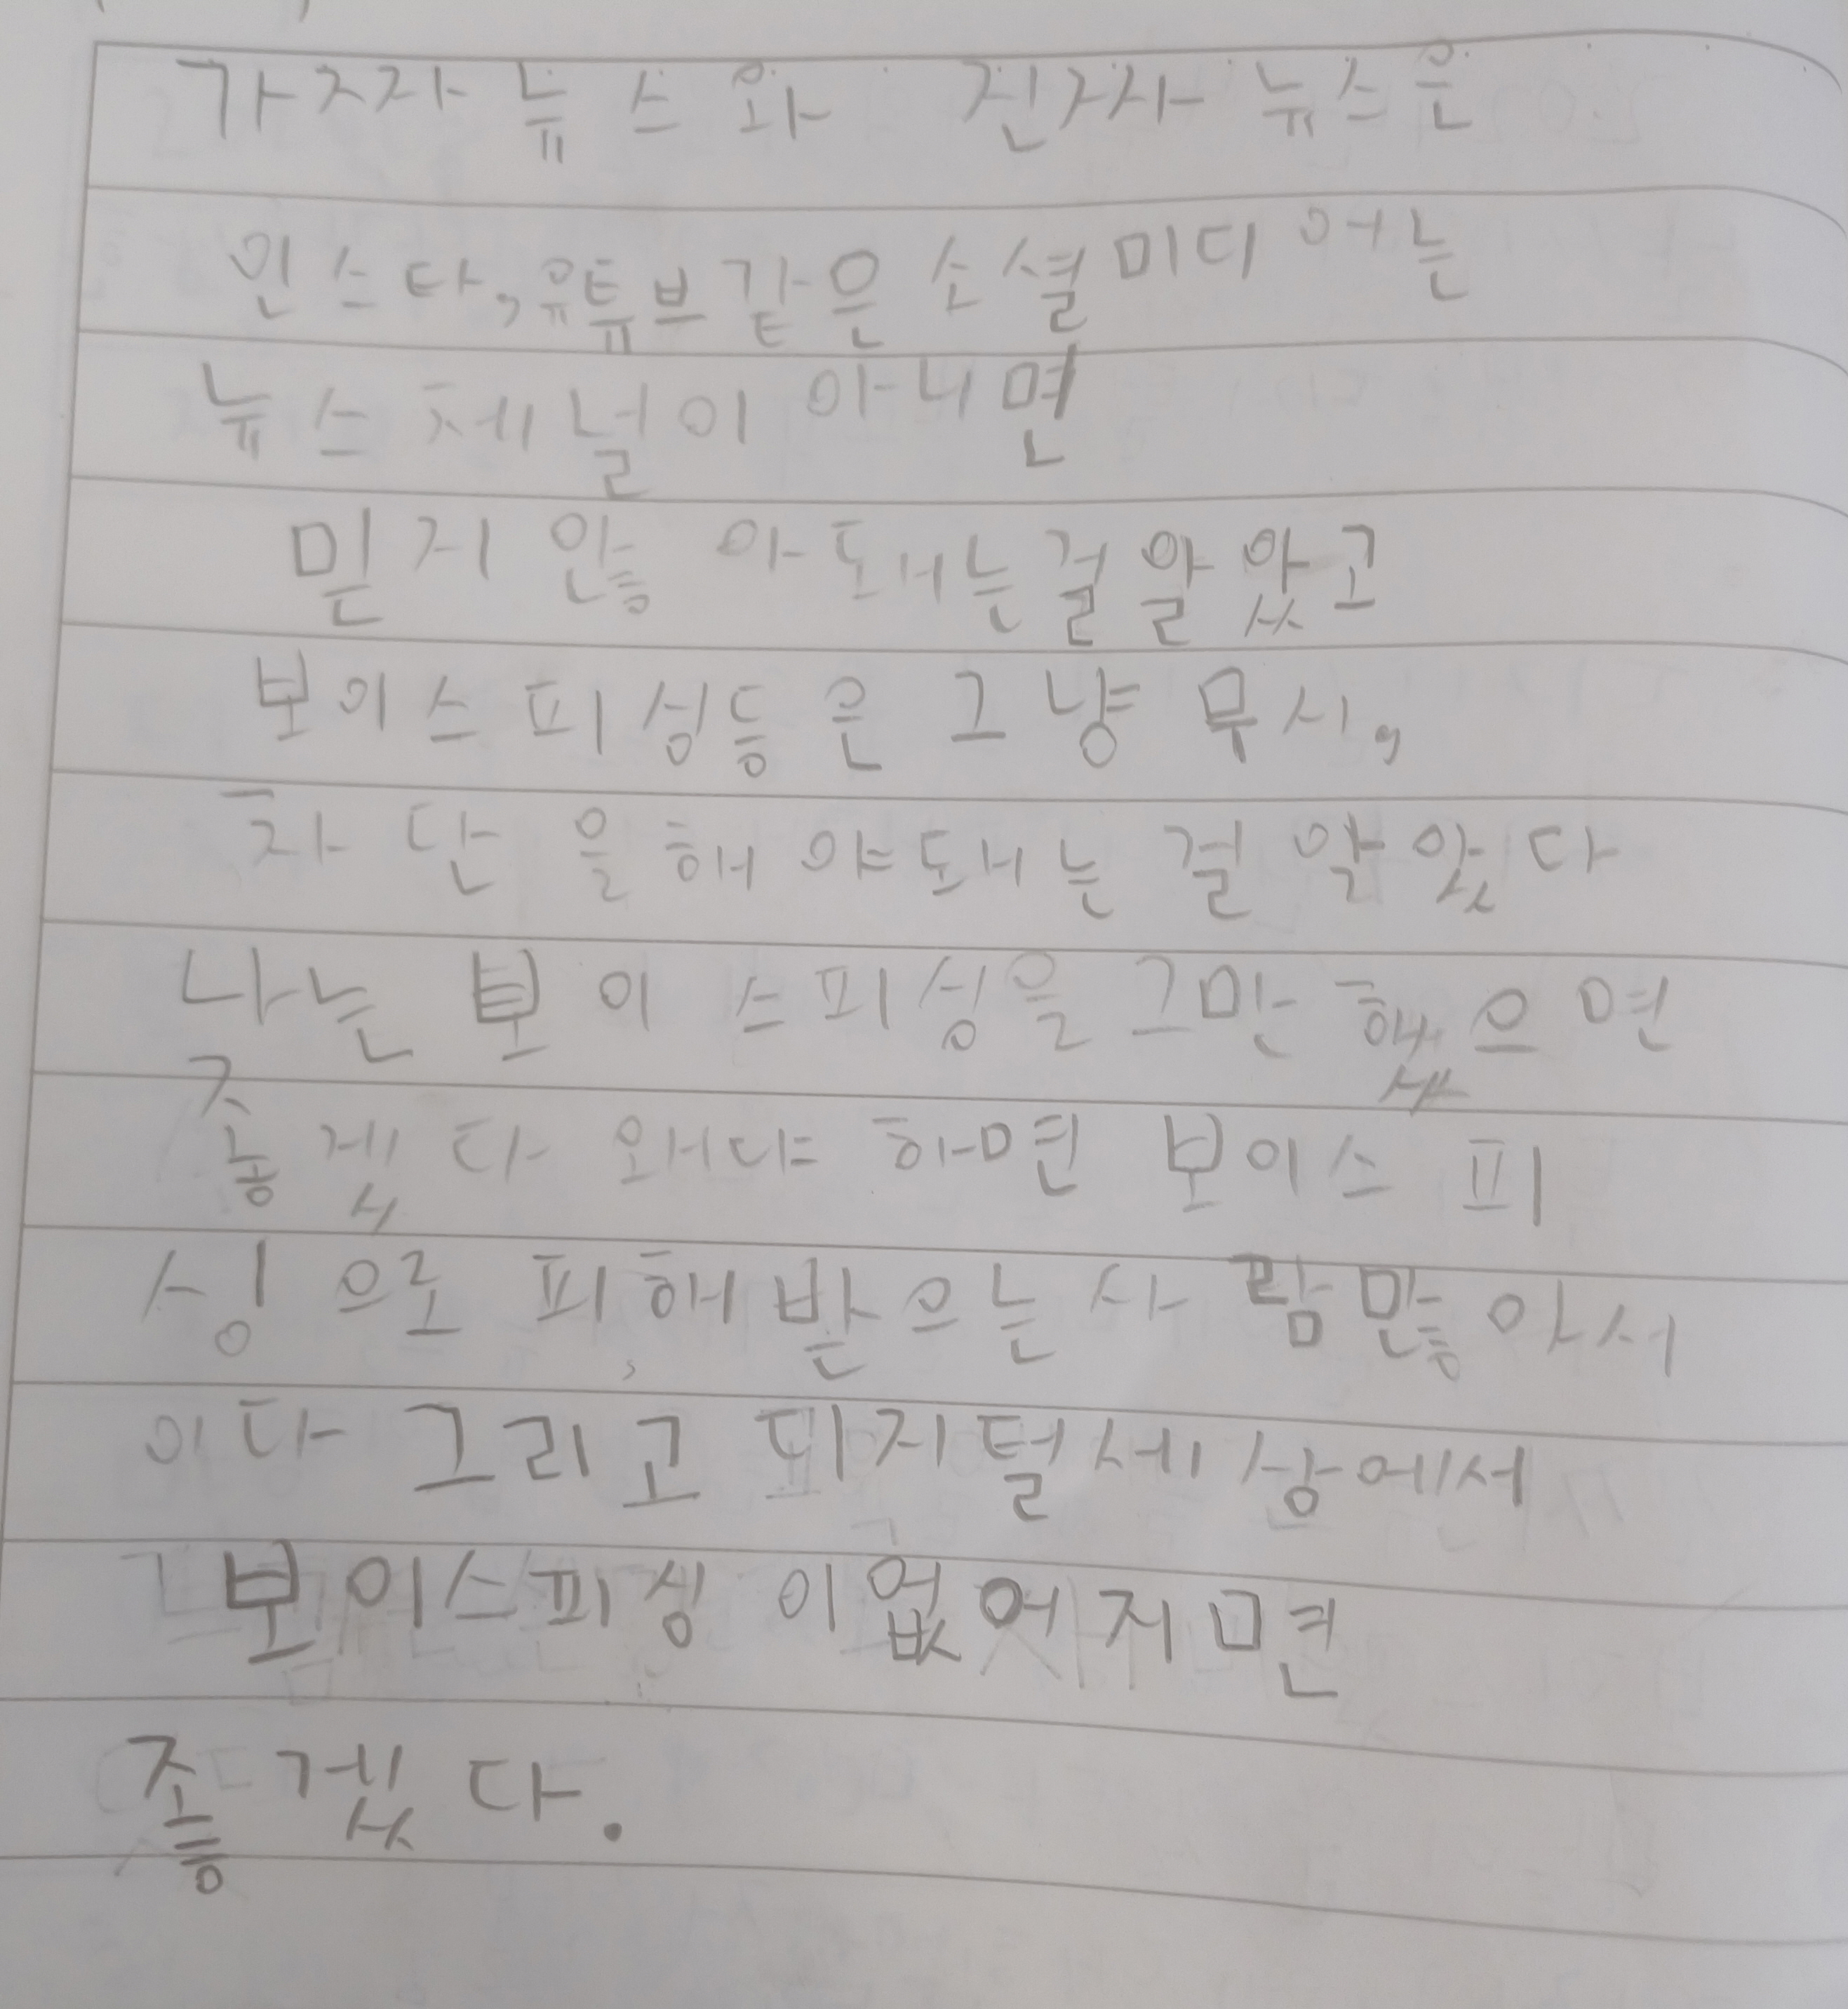 가짜 뉴스와 진짜 뉴스은
인스타, 유튜브 같은 소셜미디어는
뉴스 체널이 아니면
믿지 않 아도돼는걸 알았고
보이스피싱등은 그냥 무시,
차단을 해야돼는 걸 알았다
나는 보이스피싱을 그만 했으면
좋겠다 왜냐 하면 보이스 피
싱으로 피해받으는 사람많아서
이다 그리고 디지털세상에서
보이스피싱 이없어지면
좋겠다.